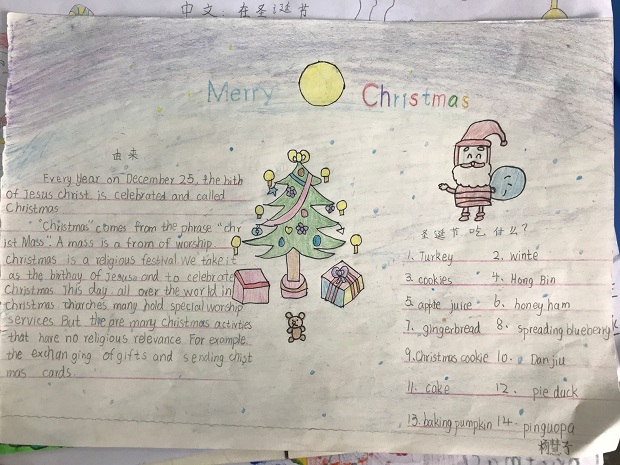 中文：在圣诞节
Merry Christmas
由来
Every Year on December 25, the bith
of Jesus christ is celebrated and called
Christmas
"Christmas" comes from the phrase "chr
ist Mass". A mass is a from of worship.
christmas is a religious festival We take it
as the birthay of Jesuse and to celebrate
Christmas. This day all over the world in
christmas charches many hold special worship
services. But the are many christmas activities
that hare no religious relevance. For example
the exchanging of gifts and sending christ
mas cards.
圣诞节吃什么?
1. Turkey 2. winte
3. cookies 4. Hong Bin
5. apple juice 6. honey ham
7. gingerbread 8. spreading blueberry
9. Christmas cookie 10. Danjiu
11. cake 12. pie duck
13. baking pumpkin 14. pinguopa